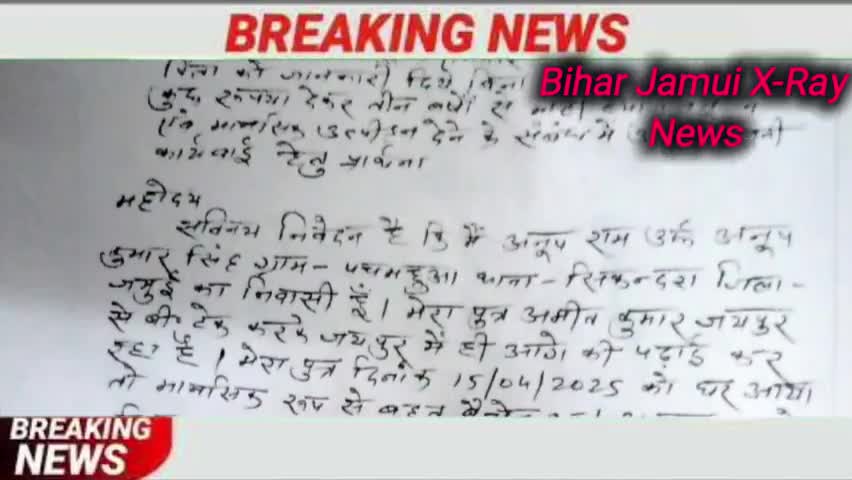 BREAKING NEWS
Bihar Jamui X-Ray
News
पिता को जानकारी दिये बिना
कुछ रूपया देकर तीन वर्षों से
एवं मानसिक उत्पीड़न देने के संबंध में
कार्यवाई हेतु प्रार्थना
महोदय
सविनय निवेदन है कि मैं अनूप राम उर्फ अनूप
कुमार सिंह ग्राम- पचमहुआ थाना-सिकन्दरा जिला-
जमुई का निवासी हूँ। मेरा पुत्र अमीत कुमार जयपुर
से बी॰ टेक करके जयपुर में ही आगे की पढ़ाई कर
रहा है। मेरा पुत्र दिनांक 15/04/2025 को घर आया
तो मानसिक रूप से बहुत
BREAKING
NEWS